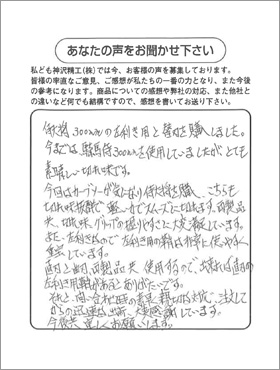 あなたの声をお聞かせ下さい
私ども神沢精工(株)では今、お客様の声を募集しております。
皆様の率直なご意見、ご感想が私たちの一番の力となり、また今後
の参考になります。商品についての感想や弊社の対応、また他社と
の違いなど何でも結構ですので、感想を書いてお送り下さい。
300mmの左利き用と替刃を購入しました。
今までは、300mmを使用していましたが、とても
素晴しい切れ味です。
今回はカーブソーが気になり購入、こちらも
切れ味抜群で軽い力でスムーズに切れます。両製品
共、切れ味、グリップの握りやすさに大変満足しています。
また、左利きなので左利き用の鞘は非常に使いやすく
重宝しています。
直刃と曲刃、両製品共使用するので、出来れば曲刃の
左利き用鞘があるとありがたいです。
それと、問い合わせ時の親切な対応、注文して
からの迅速な出荷、大変感謝しています。
今後共、宜しくお願いします。